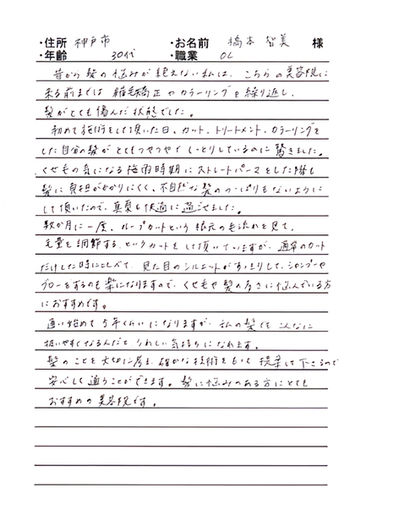 ・住所 神戸市 ・お名前 橋本 智美 様
・年齢 30代 ・職業 OL
昔から髪の悩みが絶えない私は、こちらの美容院に
来る前までは 縮毛矯正やカラーリングを繰り返し、
髪がとても傷んだ状態でした。
初めて施術をして頂いた日、カット、トリートメント、カラーリングを
した自分の髪が とてもつやつやで しっとりしているのに 驚きました。
くせ毛の気になる梅雨時期に ストレートパーマをした時も
髪に負担がかかりにくく、不自然な髪のつっぱりもないように
して頂いたので、真夏も快適に過ごせました。
数か月に一度、ループカットという 根元の毛流れを見て、
毛量を調節する、というカットをして頂いていますが、通常のカット
だけした時にくらべて、見た目のシルエットがすっきりして、シャンプーや
ブローをするのも楽になりますので、くせ毛や 髪の多さに悩んでいる方
におすすめです。
通い始めて 5年くらいになりますが、私の髪でも こんなに
扱いやすくなるんだと うれしい気持ちになれます。
髪のことを大切に考え、確かな技術をもって 提案して下さるので
安心して通うことができます。髪に悩みのある方にとても
おすすめの美容院です。